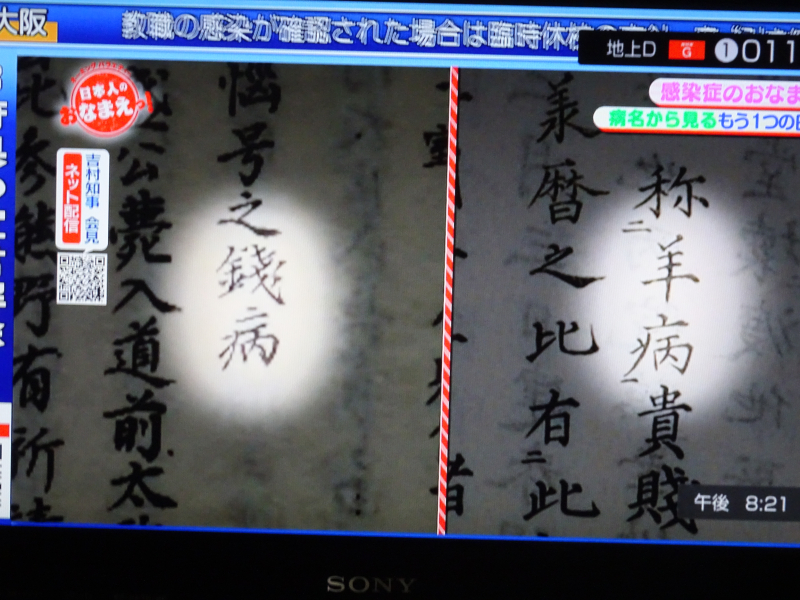 大阪
教職の感染が確認された場合は臨時休校
地上D
G
1
011
日本人の
おなまえっ!
感染症のおなま
病名から見るもう1つの
吉村知事 会見
ネット配信
称
二
羊病
一
貴賤
暦之比有
二
此
悩号之錢病
公薨入道前太
参熊野有所
午後 8:21
SONY